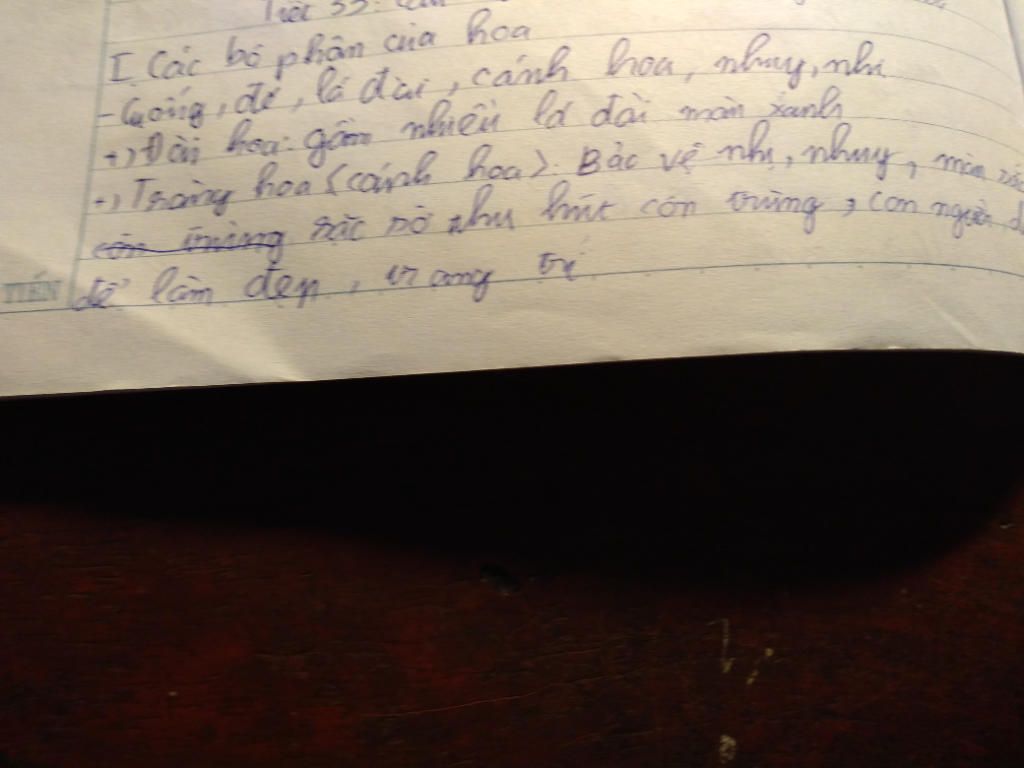 Tiết 33:
I Các bộ phận của hoa
- Cuống, đế, lá đài, cánh hoa, nhuỵ, nhị
+) Đài hoa: gồm nhiều lá đài màn xanh
+) Tràng hoa (cánh hoa): Bảo vệ nhị, nhuỵ, màn sắc
côn trùng sặc sỡ thu hút côn trùng, con người
để làm đẹp, trang trí
TIẾN